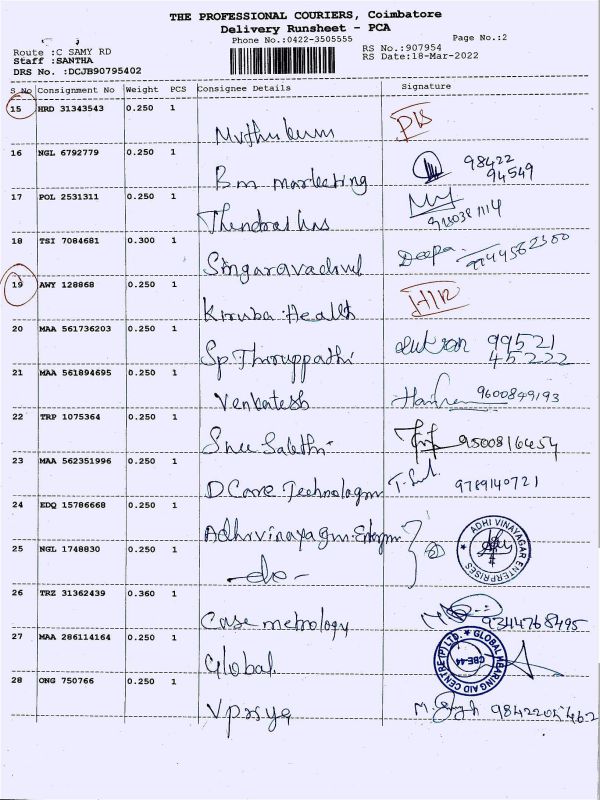 THE PROFESSIONAL COURIERS, Coimbatore
Delivery Runsheet - PCA
Phone No.:0422-3505555
Page No.:2
Route :C SAMY RD
Staff :SANTHA
DRS No. :DCJB90795402
RS No.:907954
RS Date:18-Mar-2022
S No Consignment No Weight PCS Consignee Details Signature
15 HRD 31343543 0.250 1
Muthukum
16 NGL 6792779 0.250 1
Bm marketing 98422
94549
17 POL 2531311 0.250 1
18 TSI 7084681 0.300 1
Singaravadivel Deepa
19 AWY 128868 0.250 1
Kiruba Health
20 MAA 561736203 0.250 1
Sp Thiruppathi 99521
45222
21 MAA 561894695 0.250 1
Venkatesh 9600849193
22 TRP 1075364 0.250 1
Sree Sakthi 9500816454
23 MAA 562351996 0.250 1
D Care Technologm 9789140721
24 EDQ 15786668 0.250 1
Adhivinayagm
ADHI VINAYAGAR ENTERPRISES
25 NGL 1748830 0.250 1
-do-
26 TRZ 31362439 0.360 1
Case metrology 9344768495
27 MAA 286114164 0.250 1
Global
GLOBAL HEARING AID CENTRE (P) LTD.
CBE-44
28 ONG 750766 0.250 1